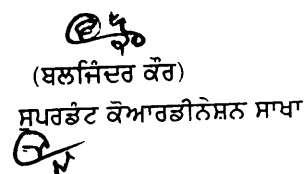 (ਬਲਜਿੰਦਰ ਕੌਰ)
ਸੁਪਰਡੰਟ ਕੋਆਰਡੀਨੇਸ਼ਨ ਸਾਖਾ